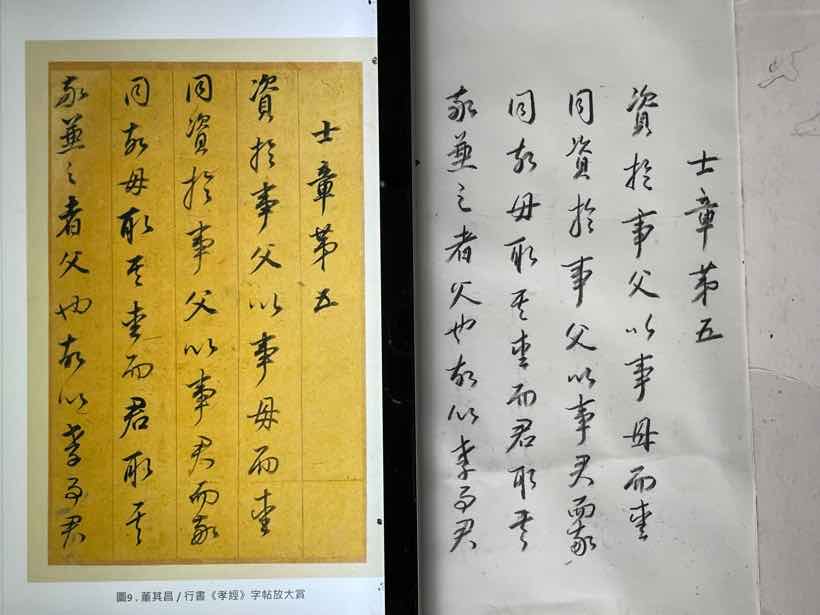 士章第五
資於事父以事母而愛
同資於事父以事君而敬
同故母取其愛而君取其
敬兼之者父也故以孝事君
圖9 . 董其昌 / 行書《孝經》字帖放大賞
士章第五
資於事父以事母而愛
同資於事父以事君而敬
同故母取其愛而君取其
敬兼之者父也故以孝事君